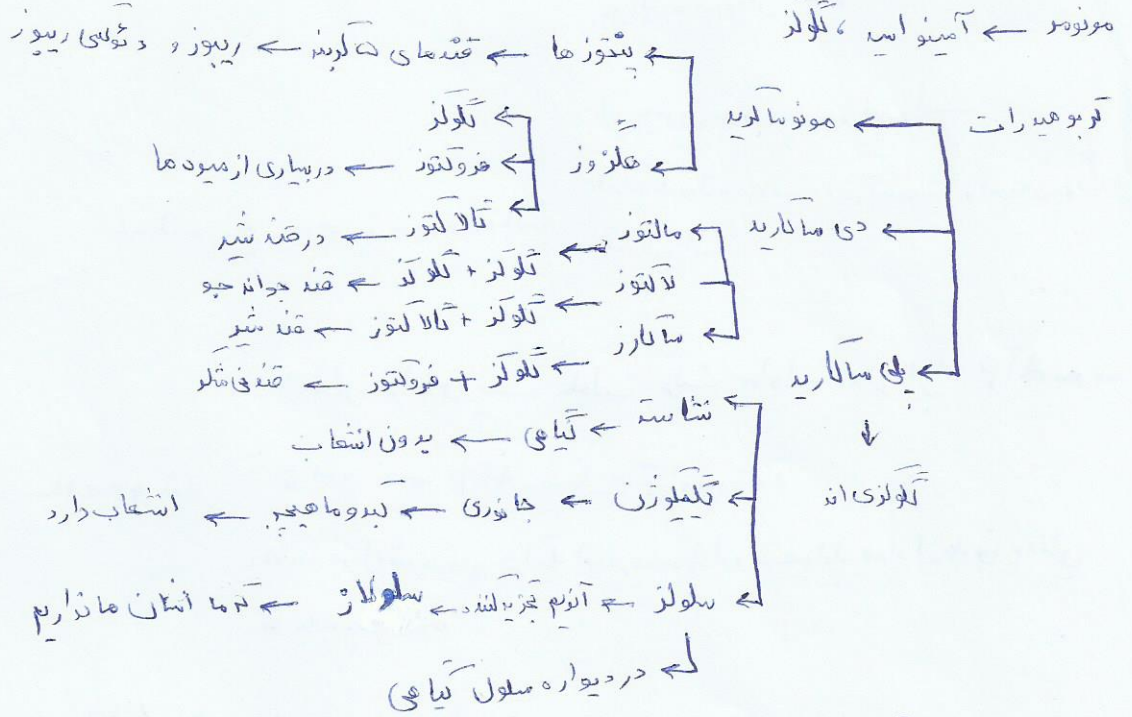 مونومر ← آمینو اسید ، گلوکز
پنتوز ها ← قندهای ۵ کربنه ← ریبوز و دئوکسی ریبوز
کربوهیدرات ← مونوساکارید
هگزوز ← گلوکز
فروکتوز ← در بسیاری از میوه ها
گالاکتوز ← در قند شیر
دی ساکارید ← مالتوز ← گلوکز + گلوکز ← قند جوانه جو
لاکتوز ← گلوکز + گالاکتوز ← قند شیر
ساکارز ← گلوکز + فروکتوز ← قند نی شکر
پلی ساکارید
↓
گلوکزی اند
نشاسته ← گیاهی ← بدون انشعاب
گلیکوژن ← جانوری ← کبد و ماهیچه ← انشعاب دارد
سلولز ← آنزیم تجزیه کننده ← سلولاز ← که ما انسان ها نداریم
← در دیواره سلول گیاهی